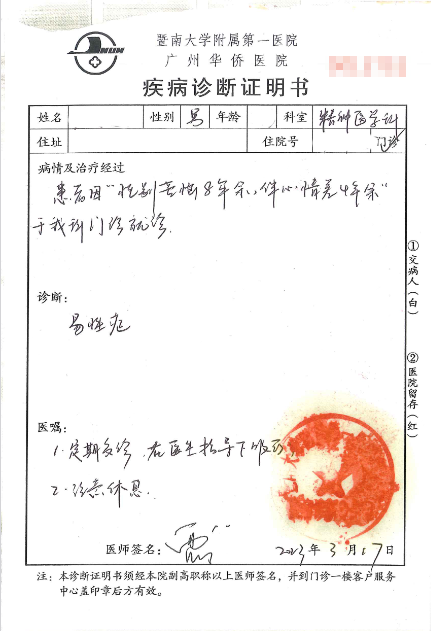 暨南大学附属第一医院
广州华侨医院
疾病诊断证明书
姓名 性别 男 年龄 科室 精神医学科
住址 住院号 门诊
病情及治疗经过
患者因“性别苦恼8年余,伴心情差4年余”
于我科门诊就诊.
诊断:
易性症
医嘱:
1.定期复诊,在医生指导下服药
2.注意休息.
医师签名:
2023年3月17日
注:本诊断证明书须经本院副高职称以上医师签名,并到门诊一楼客户服务
中心盖印章后方有效。
①交病人(白)
②医院留存(红)